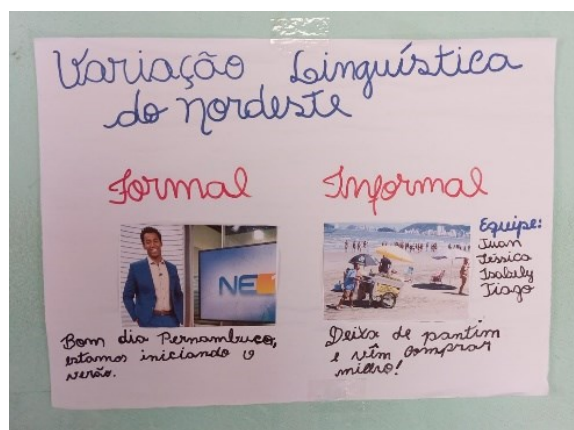 Variação Linguística
do nordeste
Formal
Informal
NE1
Bom dia Pernambuco,
estamos iniciando o
verão.
Equipe:
Juan
Jéssica
Isabely
Tiago
Deixa de pantim
e vêm comprar
milho!